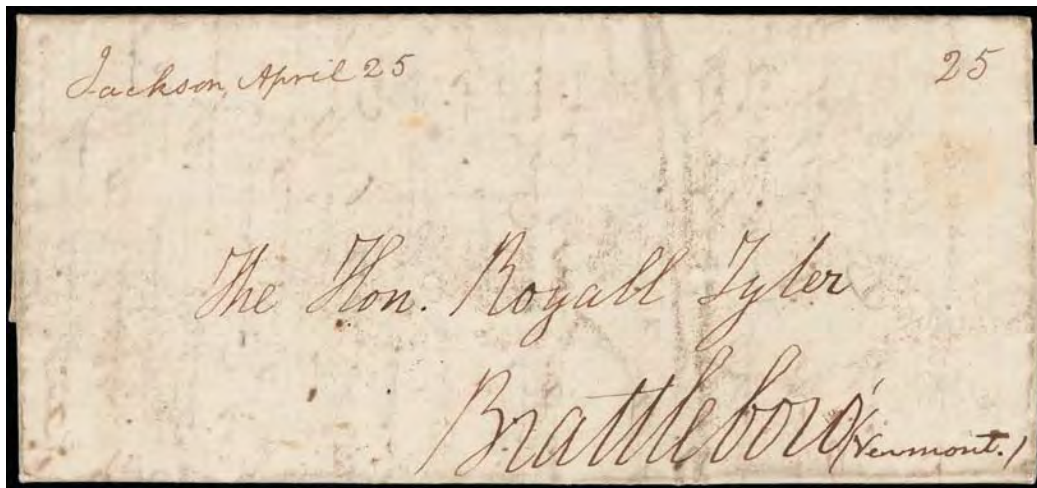 Jackson, April 25
25
The Hon. Royall Tyler
Brattleboro'
(Vermont.)